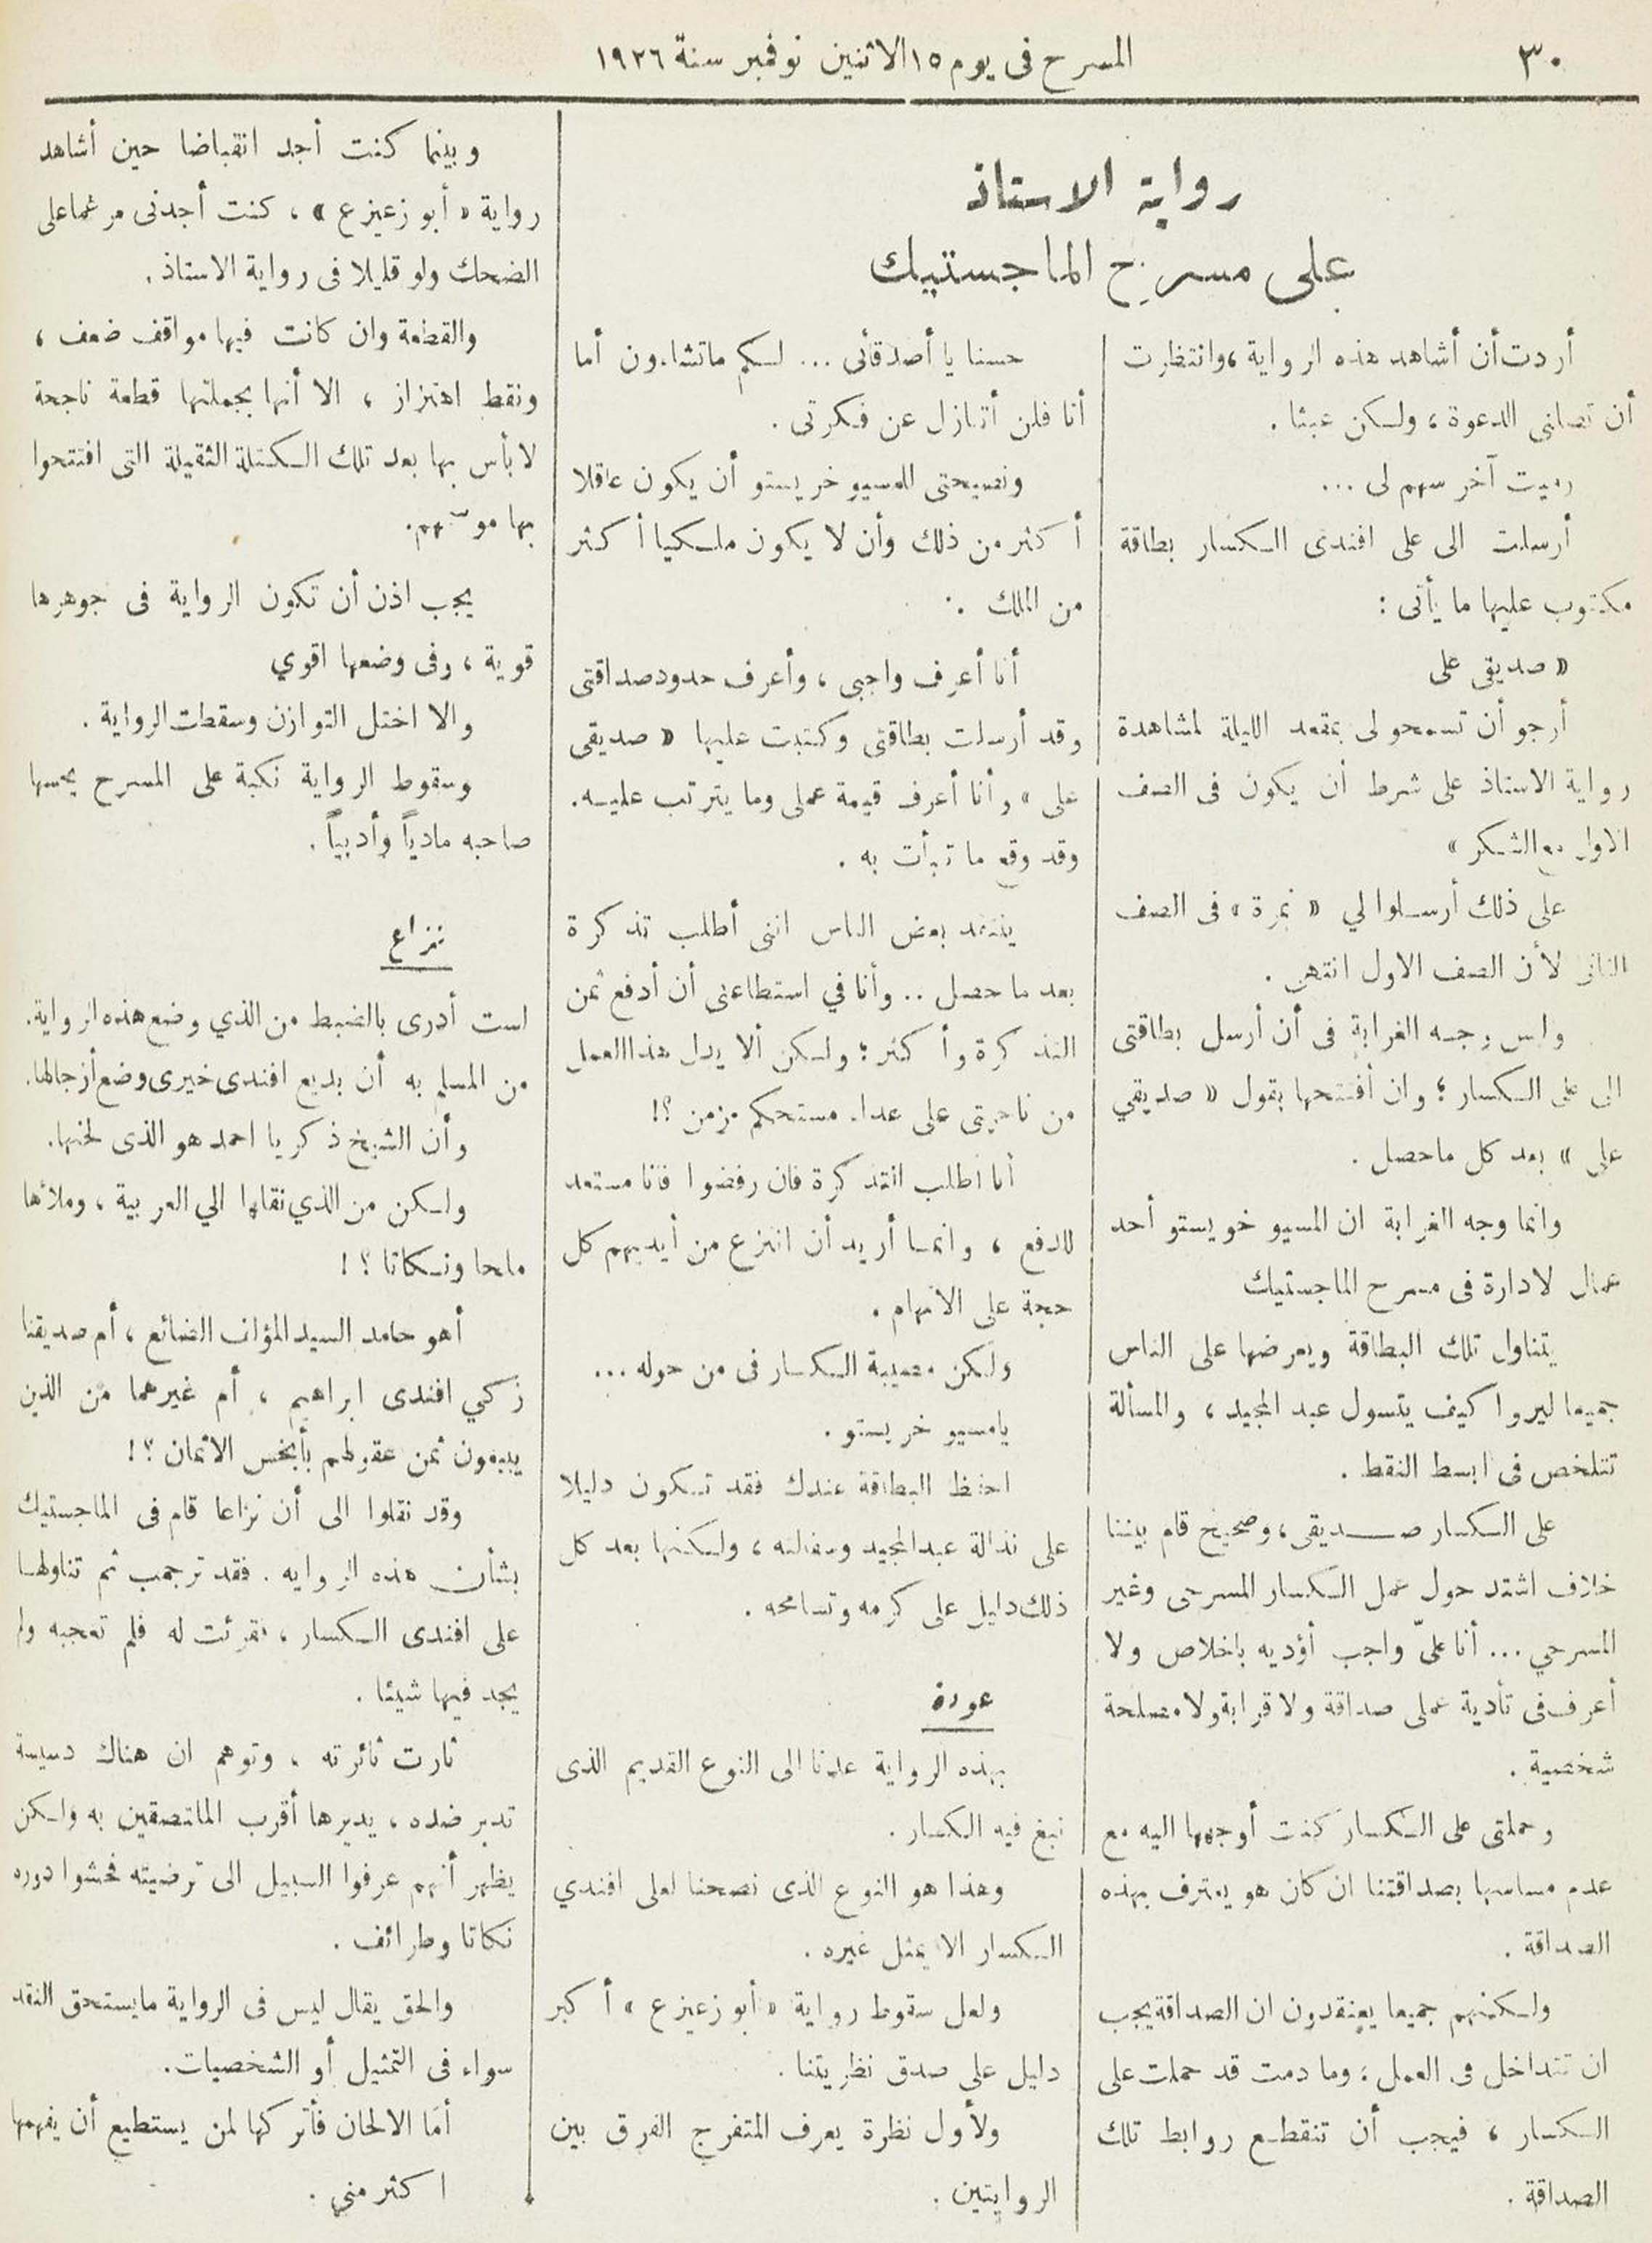 ٣٠
المسرح فى يوم ١٥ الاثنين نوفمبر سنة ١٩٢٦
رواية الاستاذ
على مسرح الماجستيك
أردت أن أشاهد هذه الرواية، وانتظرت
أن تصلنى الدعوة، ولكن عبثا.
رميت آخر سهم لى ...
أرسلت الى على افندى الكسار بطاقة
مكتوب عليها ما يأتى :
« صديقى على
أرجو أن تسمحو لى بمقعد الليلة لمشاهدة
رواية الاستاذ على شرط أن يكون فى الصف
الاول مع الشكر »
على ذلك أرسلوا لي « نمرة » فى الصف
الثانى لأن الصف الاول انتهى .
وليس وجه الغرابة فى أن أرسل بطاقتى
الى على الكسار ؛ وان أفتتحها بقول « صديقي
على » بعد كل ماحصل .
وانما وجه الغرابة ان المسيو خويستو أحد
عمال لادارة فى مسرح الماجستيك
يتناول تلك البطاقة ويعرضها على الناس
جميعا ليروا كيف يتسول عبد المجيد ، والمسألة
تتلخص فى ابسط النقط .
على الكسار صديقى ، وصحيح قام بيننا
خلاف اشتد حول عمل الكسار المسرحى وغير
المسرحي ... أنا علىّ واجب أؤديه باخلاص ولا
أعرف فى تأدية عملى صداقة ولا قرابة ولا مصلحة
شخصية .
وحملتى على الكسار كنت أوجهها اليه مع
عدم مساسها بصداقتنا ان كان هو يعترف بهذه
الصداقة .
ولكنهم جميعا يعتقدون ان الصداقة يجب
ان تتداخل فى العمل ؛ وما دمت قد حملت على
الكسار ، فيجب أن تنقطع روابط تلك
الصداقة .
حسنا يا أصدقائى ... لكم ماتشاءون أما
أنا فلن أتنازل عن فكرتى .
ونصيحتى للمسيو خريستو أن يكون عاقلا
أكثر من ذلك وأن لا يكون ملكيا أكثر
من الملك .
أنا أعرف واجبى ، وأعرف حدود صداقتى
وقد أرسلت بطاقتى وكتبت عليها « صديقى
على » وأنا أعرف قيمة عملى وما يترتب عليه .
وقد وقع ما تنبأت به .
ينتقد بعض الناس اننى أطلب تذكرة
بعد ما حصل .. وأنا في استطاعتى أن أدفع ثمن
التذكرة وأكثر ؛ ولكن ألا يدل هذا العمل
من ناحيتى على عداء مستحكم مزمن ؟!
أنا أطلب التذكرة فان رفضوا فانا مستعد
للدفع ، وانما أريد أن انتزع من أيديهم كل
حجة على الاتهام .
ولكن مصيبة الكسار فى من حوله ...
يامسيو خريستو .
احتفظ البطاقة عندك فقد تكون دليلا
على نذالة عبد المجيد وسفالته ، ولكنها بعد كل
ذلك دليل على كرمه وتسامحه .
عودة
بهذه الرواية عدنا الى النوع القديم الذى
نبغ فيه الكسار .
وهذا هو النوع الذى نصحنا لعلى افندي
الكسار الا يمثل غيره .
ولعل سقوط رواية « أبو زعيزع » أكبر
دليل على صدق نظريتنا .
ولأول نظرة يعرف المتفرج الفرق بين
الروايتين .
وبينما كنت أجد انقباضا حين أشاهد
رواية « أبو زعيزع » ، كنت أجدنى مرغما على
الضحك ولو قليلا فى رواية الاستاذ .
والقطعة وان كانت فيها مواقف ضعف ،
ونقط اهتزاز ، الا أنها بجملتها قطعة ناجحة
لا بأس بها بعد تلك الكتلة الثقيلة التى افتتحوا
بها موسمهم .
يجب اذن أن تكون الرواية فى جوهرها
قوية ، وفى وضعها اقوي
والا اختل التوازن وسقطت الرواية .
وسقوط الرواية نكبة على المسرح يحسها
صاحبه مادياً وأدبياً .
نزاع
لست أدرى بالضبط من الذي وضع هذه الرواية .
من المسلم به أن بديع افندى خيرى وضع أزجالها .
وأن الشيخ زكريا احمد هو الذى لحنها .
ولكن من الذي نقلها الي العربية ، وملأها
ملحا ونكاتا ؟ !
أهو حامد السيد المؤلف الضائع ، أم صديقنا
زكي افندى ابراهيم ، أم غيرهما من الذين
يبيعون ثمن عقولهم بأبخس الاثمان ؟ !
وقد نقلوا الى أن نزاعا قام فى الماجستيك
بشأن هذه الروايه . فقد ترجمت ثم تناولها
على افندى الكسار ، فقرئت له فلم تعجبه ولم
يجد فيها شيئا .
ثارت ثائرته ، وتوهم ان هناك دسيسة
تدبر ضده ، يديرها أقرب الملتصقين به ولكن
يظهر أنهم عرفوا السبيل الى ترضيته فحشوا دوره
نكاتا وطرائف .
والحق يقال ليس فى الرواية مايستحق النقد
سواء فى التمثيل أو الشخصيات .
أما الالحان فأتركها لمن يستطيع أن يفهمها
اكثر منى .